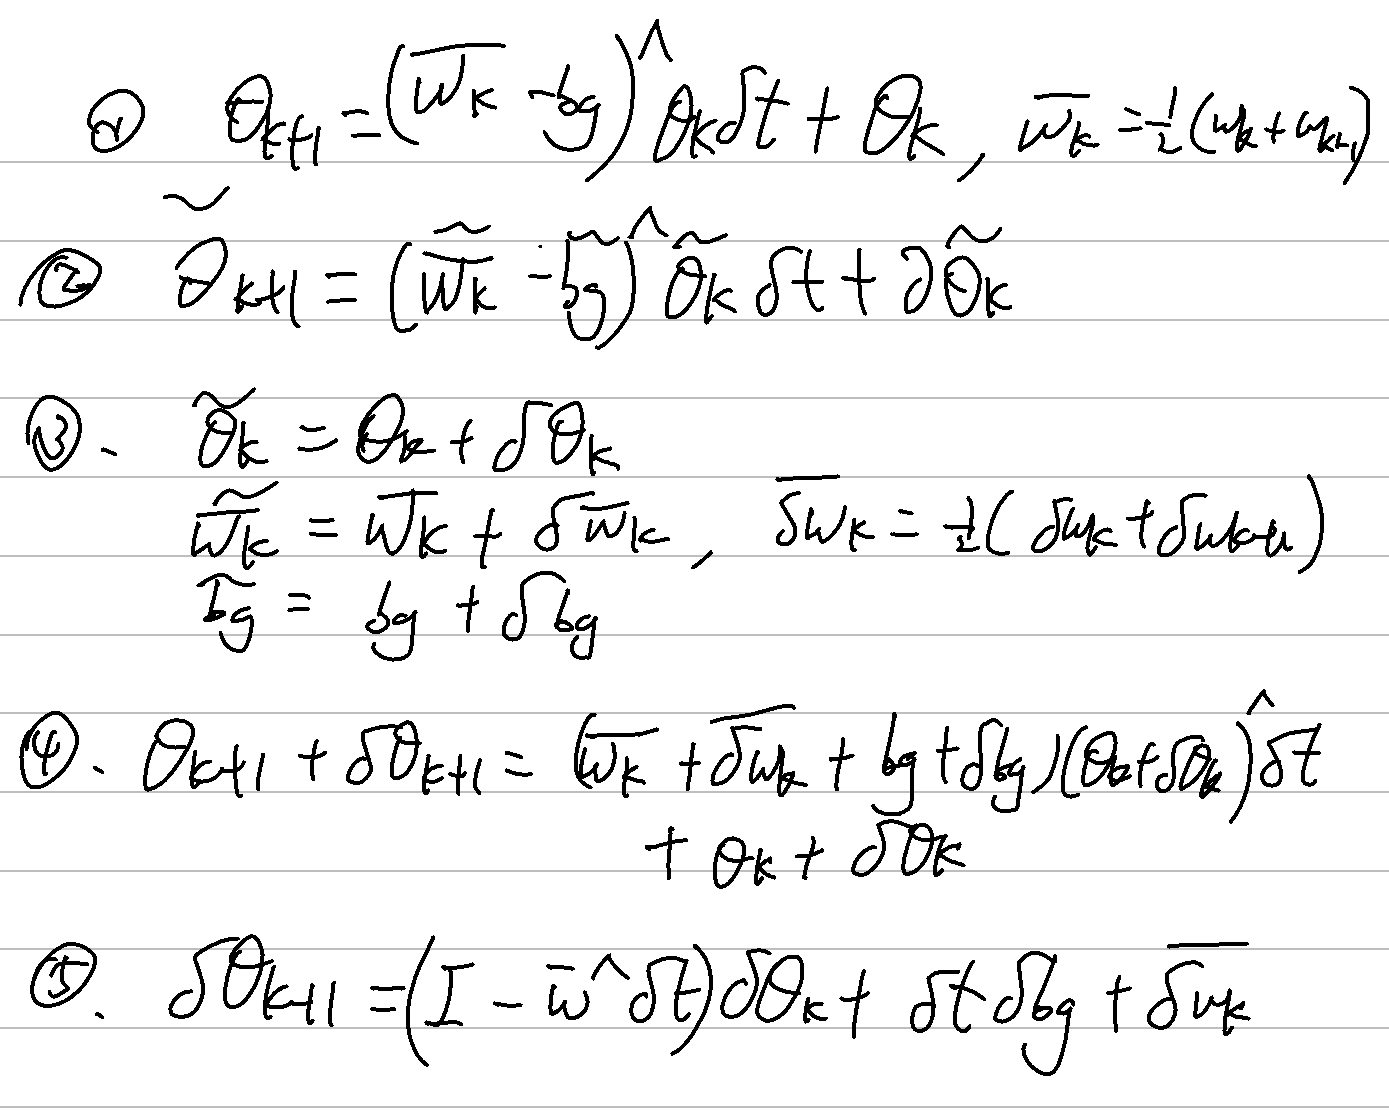 ① θ_{k+1} = (\overline{w_k} - bg)^∧ θ_k δt + θ_k , \overline{w_k} = ½(w_k + w_{k+1})
② \tilde{θ}_{k+1} = (\tilde{\overline{w_k}} - \tilde{bg})^∧ \tilde{θ_k} δt + ∂\tilde{θ_k}
③. \tilde{θ_k} = θ_k + δθ_k
\tilde{\overline{w_k}} = \overline{w_k} + δ\overline{w}_k , \overline{δw}_k = ½(δw_k + δw_{k+1})
\tilde{bg} = bg + δbg
④. θ_{k+1} + δθ_{k+1} = (\overline{w_k} + \overline{δw_k} + bg + δbg)(θ_k + δθ_k)^∧ δt
+ θ_k + δθ_k
⑤. δθ_{k+1} = (I - \overline{w}^∧ δt) δθ_k + δt δbg + \overline{δw_k}